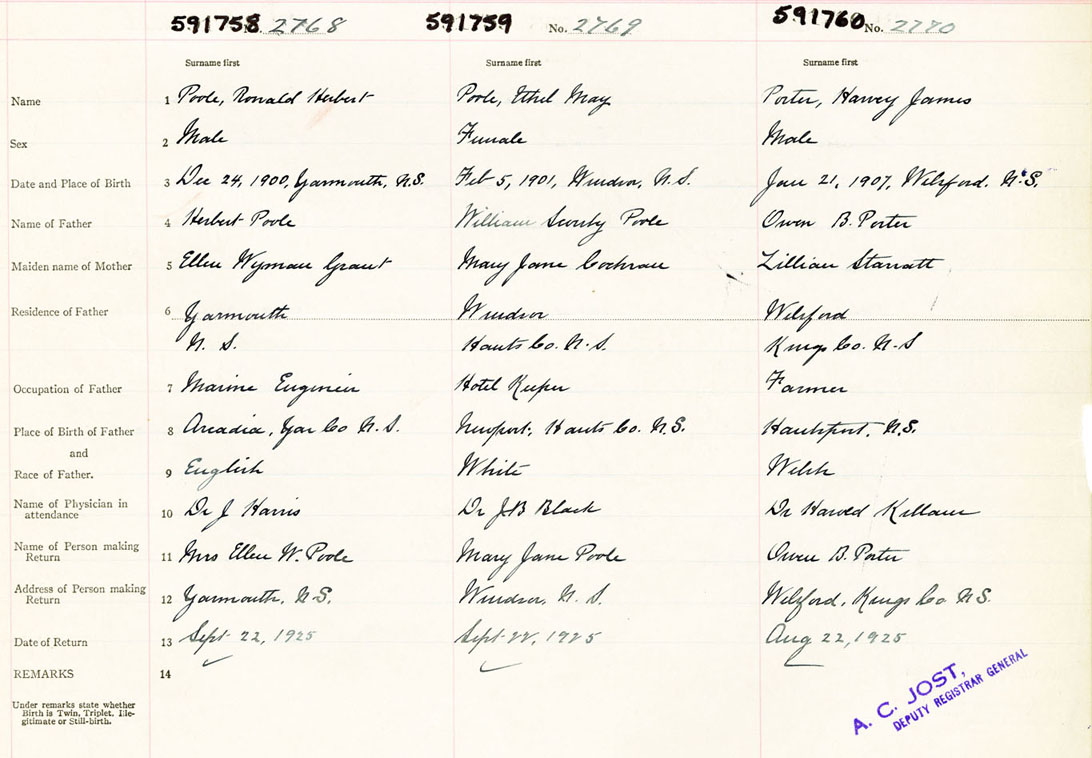 591758 2768 591759 No. 2769 591760 No. 2770
Surname first Surname first Surname first
Name 1 Poole, Ronald Herbert Poole, Ethel May Porter, Harvey James
Sex 2 Male Female Male
Date and Place of Birth 3 Dec 24, 1900, Yarmouth, N.S. Feb 5, 1901, Windsor, N.S. Jan 21, 1907, Welsford. N.S.
Name of Father 4 Herbert Poole William Poole Owen B. Porter
Maiden name of Mother 5 Ellen Wyman Grant Mary Jane Cochran Lillian Starratt
Residence of Father 6 Yarmouth Windsor Welsford
N. S. Hants Co. N.S. Kings Co. N.S
Occupation of Father 7 Marine Engineer Hotel Keeper Farmer
Place of Birth of Father 8 Arcadia, Yar Co N.S. Newport, Hants Co. N.S. Hantsport, N.S.
and
Race of Father. 9 English White Welsh
Name of Physician in
attendance 10 Dr J Harris Dr J.B Black Dr Harold Killam
Name of Person making
Return 11 Mrs Ellen W. Poole Mary Jane Poole Owen B. Porter
Address of Person making
Return 12 Yarmouth, N.S. Windsor, N.S. Welsford, Kings Co N.S.
Date of Return 13 Sept 22, 1925 Sept 22, 1925 Aug 22, 1925
REMARKS 14
Under remarks state whether
Birth is Twin, Triplet, Ille-
gitimate or Still-birth.
A. C. JOST,
DEPUTY REGISTRAR GENERAL